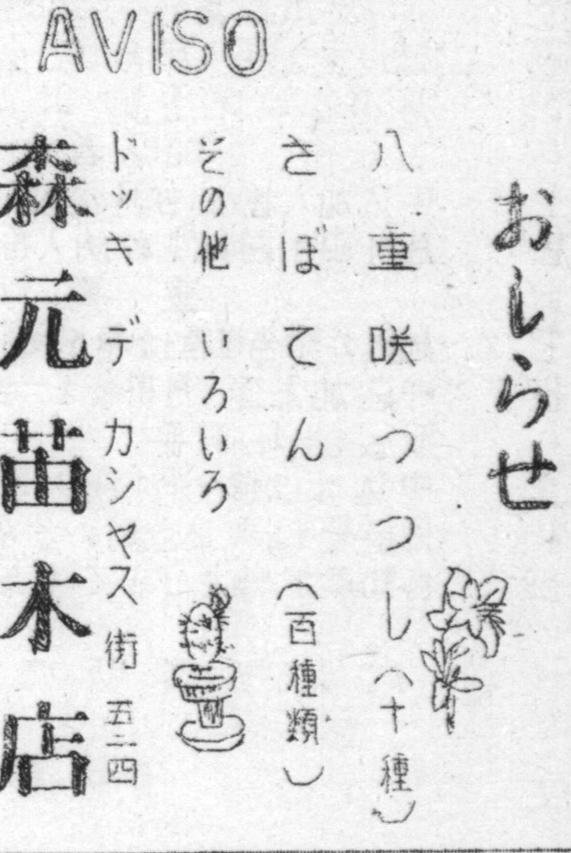 AVISO
おしらせ
八重咲つつし(十種)
さぼてん(百種類)
その他いろいろ
ドッキ デ カシャス街 五二四
森元苗木店